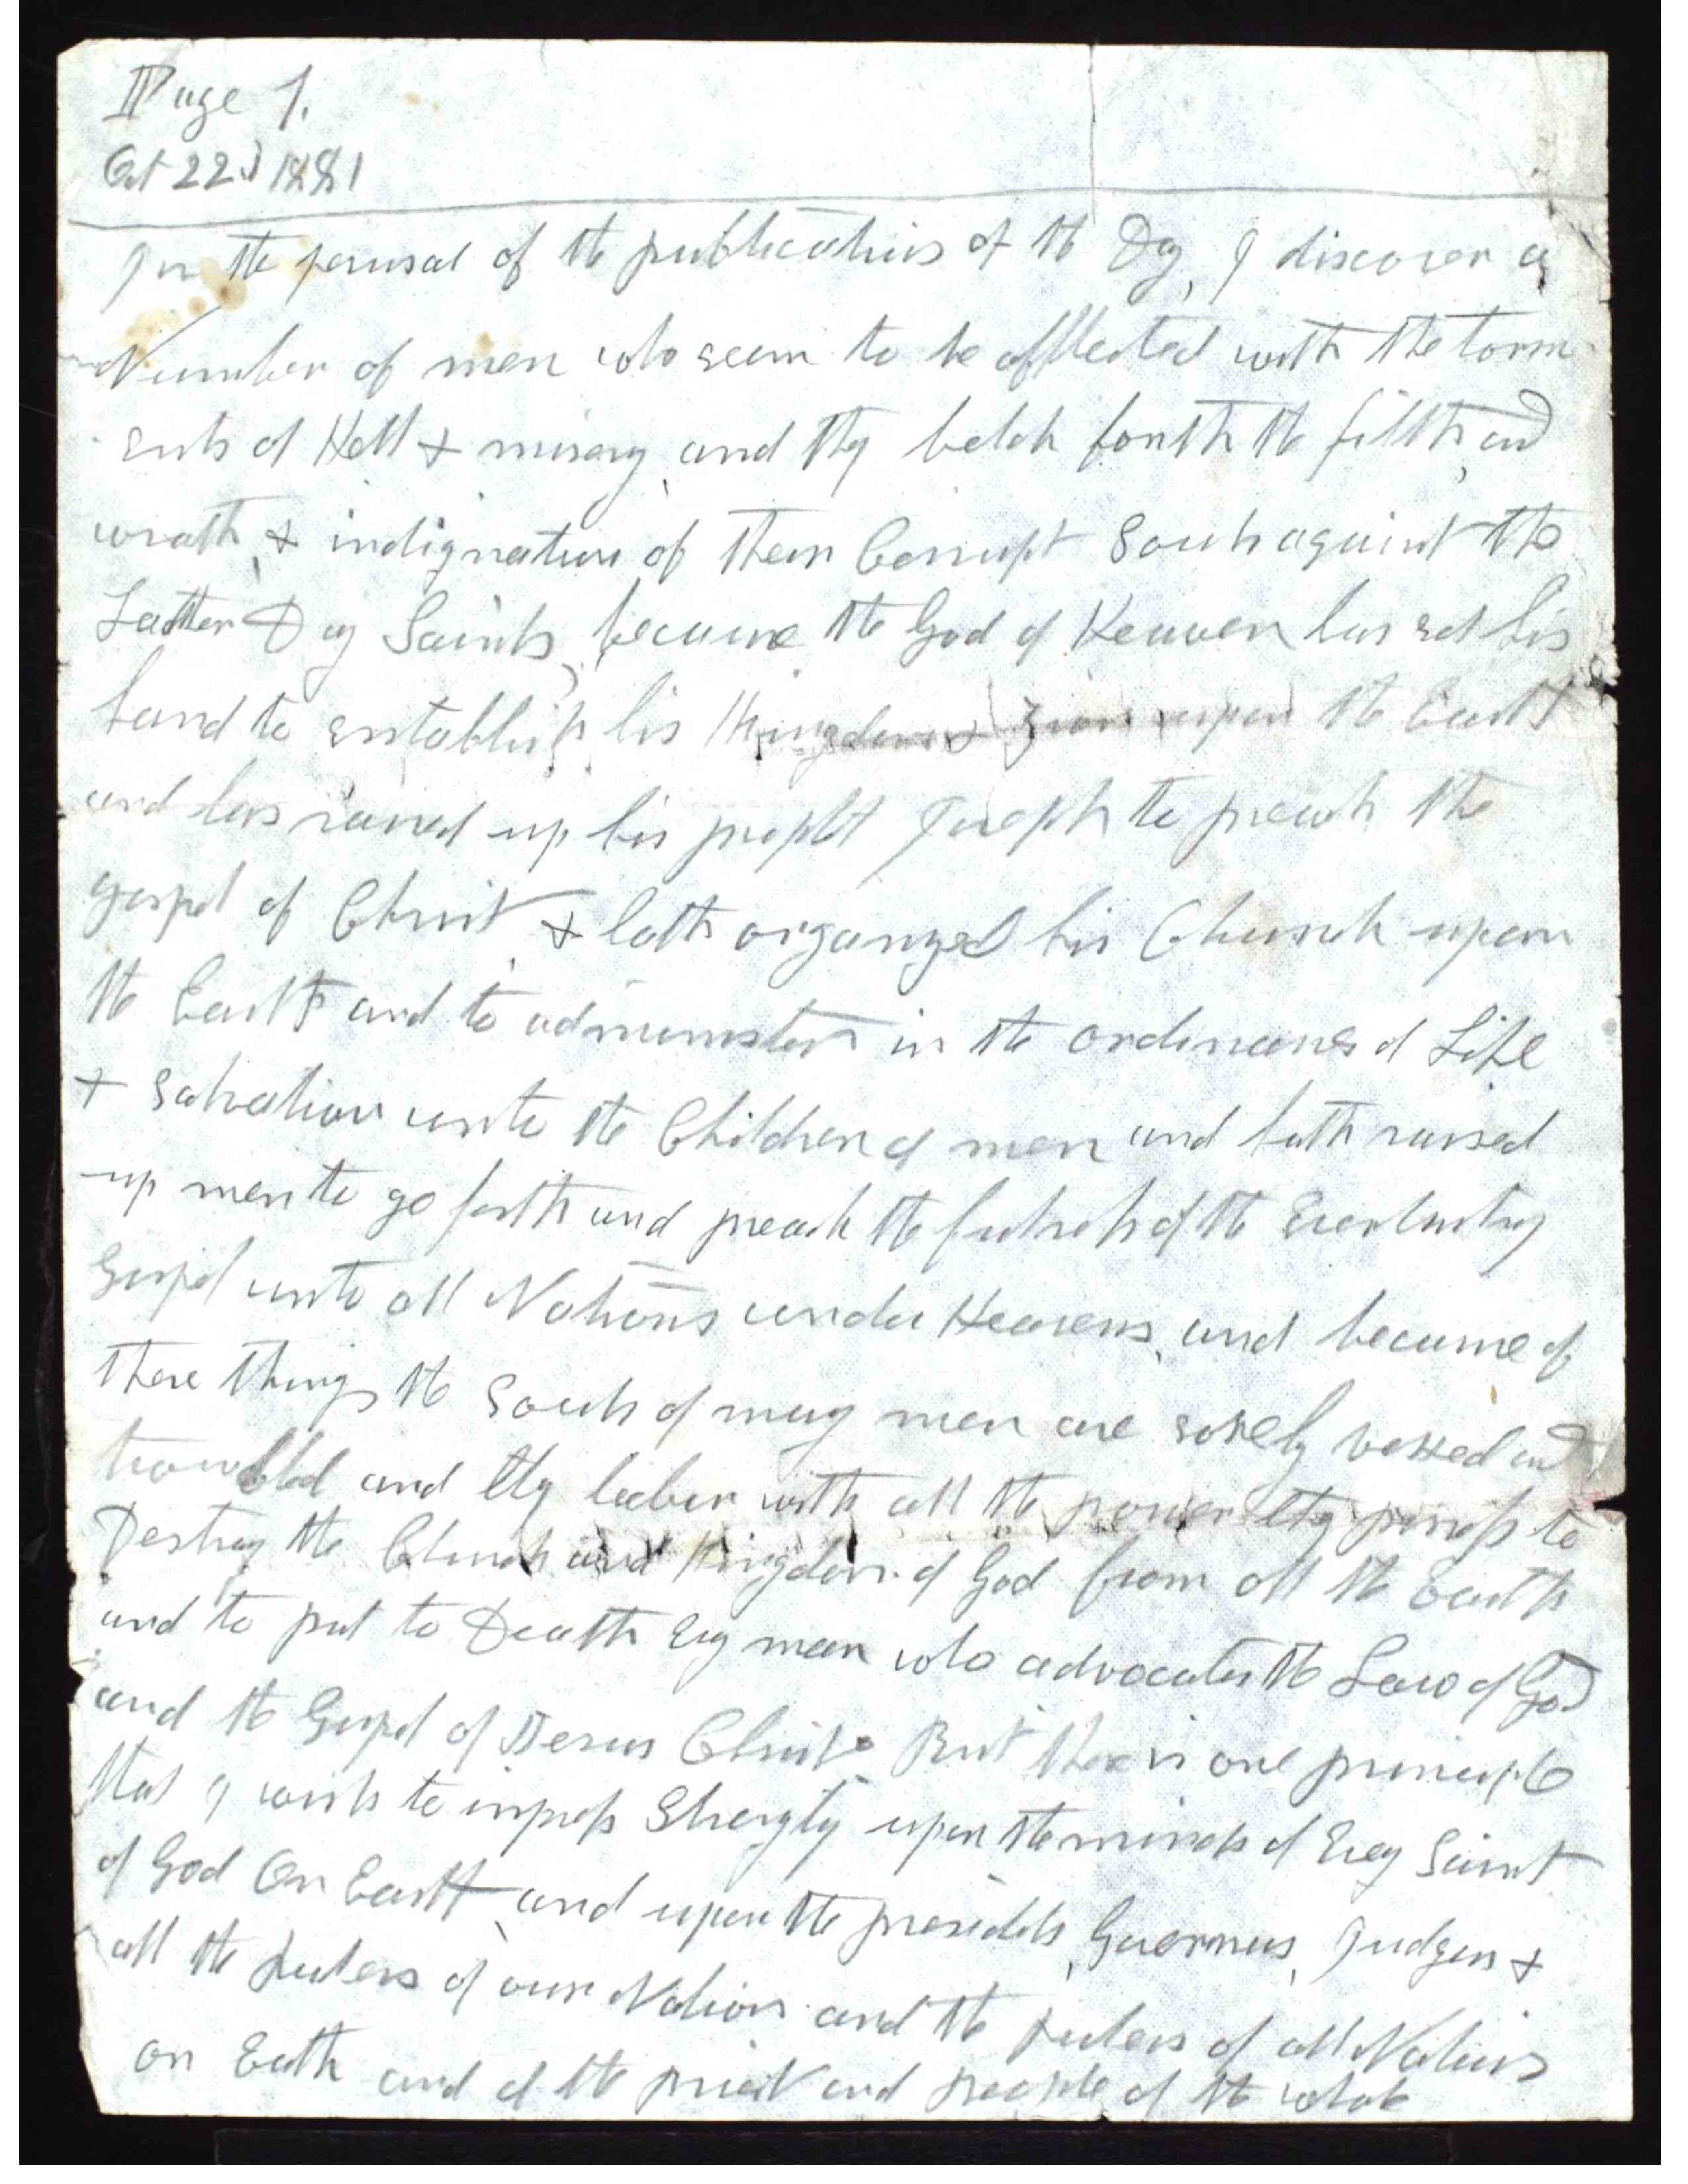 Page 1.
Oct 22d 1881
In the perusal of the publications of the Day, I discover a
Number of men who seem to be afflicted with the torm-
ents of Hell & misery, and they belch forth the filth, and
wrath, & indignation of their Corrupt Souls against the
Latter Day Saints, because the God of Heaven has set his
hand to establish his Kingdom & Zion upon the Earth
and has raised up his prophet Joseph to preach the
gospel of Christ, & hath organized his Church upon
the Earth and to administer in the ordinances of Life
& Salvation unto the Children of men and hath raised
up men to go forth and preach the fulness of the Everlasting
Gospel unto all Nations under Heavens, and because of
these things the Souls of many men are sorely vexed and
troubled and they labor with all the power they possess to
Destroy the Church and Kingdom of God from off the Earth
and to put to Death evry man who advocates the Law of God
and the Gospel of Jesus Christ. But there is one principle
that I wish to impress Strongly upon the minds of Evry Saint
of God On Earth, and upon the presidets, Governors, Judges &
all the Rulers of our Nation and the Rulers of all Nations
on Earth and of the priest and people of the whole